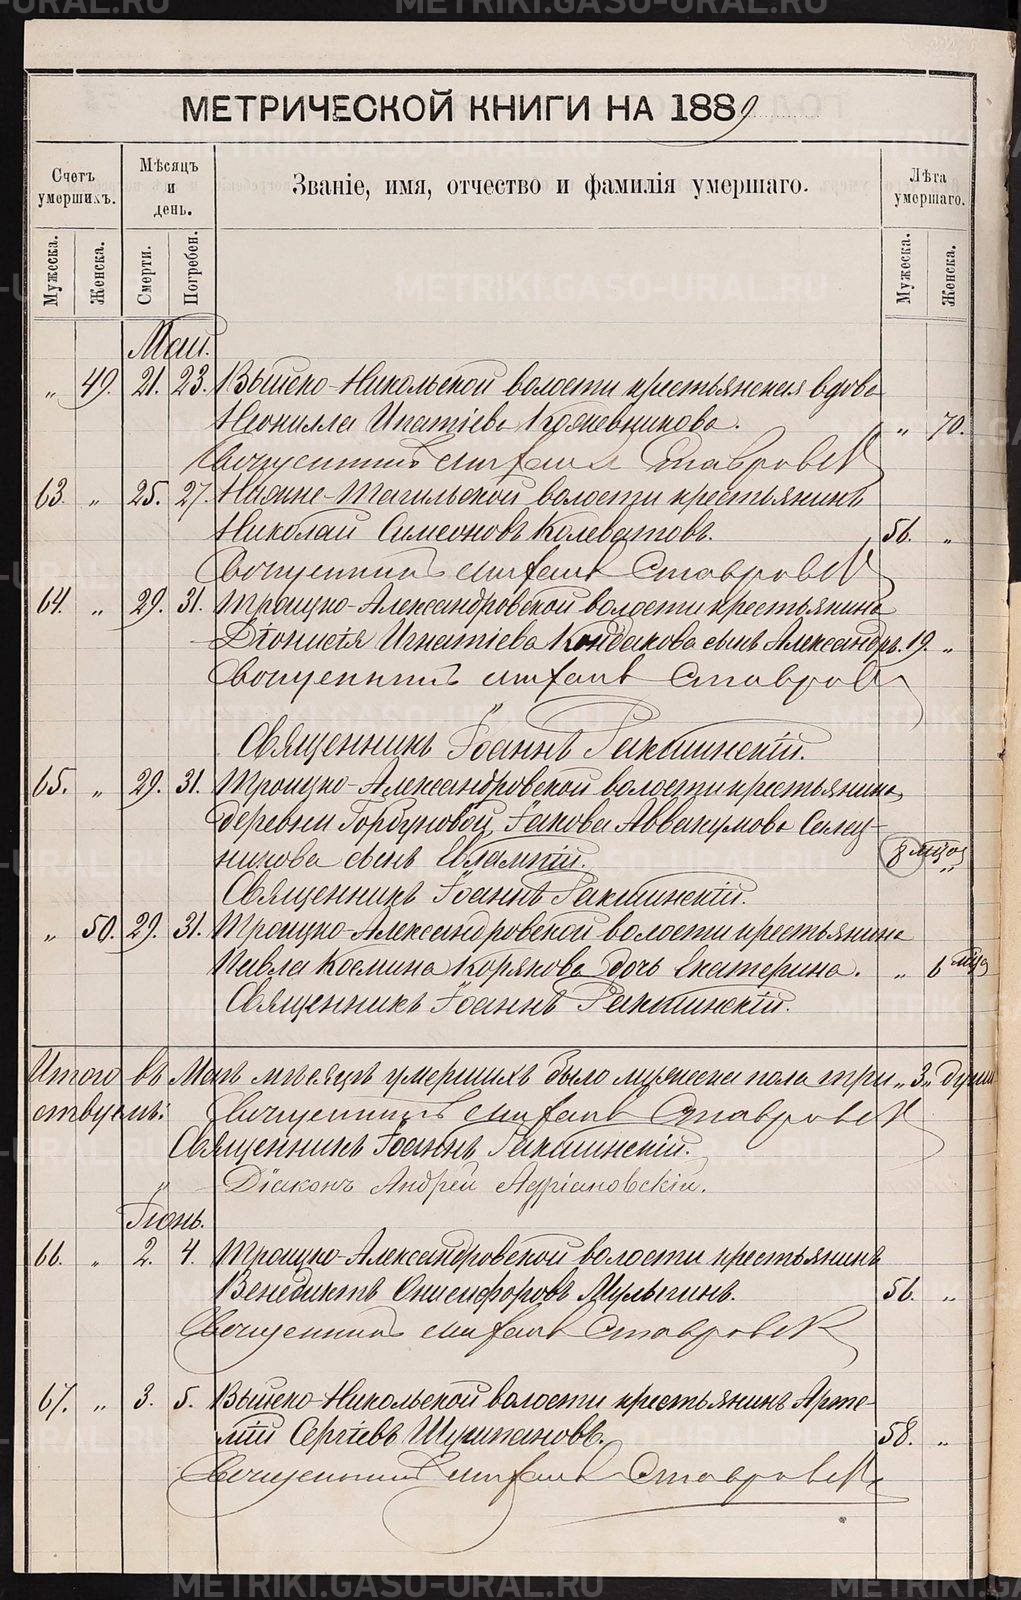 МЕТРИЧЕСКОЙ КНИГИ НА 1889
Счетъ умершихъ.
Мѣсяцъ и день.
Званіе, имя, отчество и фамилія умершаго.
Лѣта умершаго.
Мужеска.
Женска.
Смерти.
Погребен.
Мужеска.
Женска.
Май.
„ 49. 21. 23. Выйско-Никольской волости крестьянская вдова
Неонилла Ипатіева Кожевникова. „ 70.
Священникъ Михаилъ Ставровск
63. „ 25. 27. Нижне-Тагильской волости крестьянинъ
Николай Симеоновъ Колеватовъ. 56. „
Священникъ Михаилъ Ставровск
64. „ 29. 31. Троицко-Александровской волости крестьянина
Діонисія Игнатіева Кондакова сынъ Александръ. 19. „
Священникъ Михаилъ Ставровск
Священникъ Іоаннъ
65. „ 29. 31. Троицко-Александровской волости крестьянина
деревни Горбуновой, Іакова Аввакумова
сынъ Евлампій. 8 мцов „
Священникъ Іоаннъ
„ 50. 29. 31. Троицко-Александровской волости крестьянина
Павла Космина Корякова дочь Екатерина. „ 6 мца
Священникъ Іоаннъ
Итого въ Маѣ мѣсяцѣ умершихъ было мужеска пола три „3„ души
ствуемъ: Священникъ Михаилъ Ставровск
Священникъ Іоаннъ
Діаконъ Андрей Адріановскій.
Іюнь.
66. „ 2. 4. Троицко-Александровской волости крестьянинъ
Венедиктъ Онисифоровъ Мулыгинъ. 56. „
Священникъ Михаилъ Ставровск
67. „ 3. 5. Выйско-Никольской волости крестьянинъ Арте-
мій Сергіевъ 58. „
Священникъ Михаилъ Ставровск
METRIKI.GASO-URAL.RU